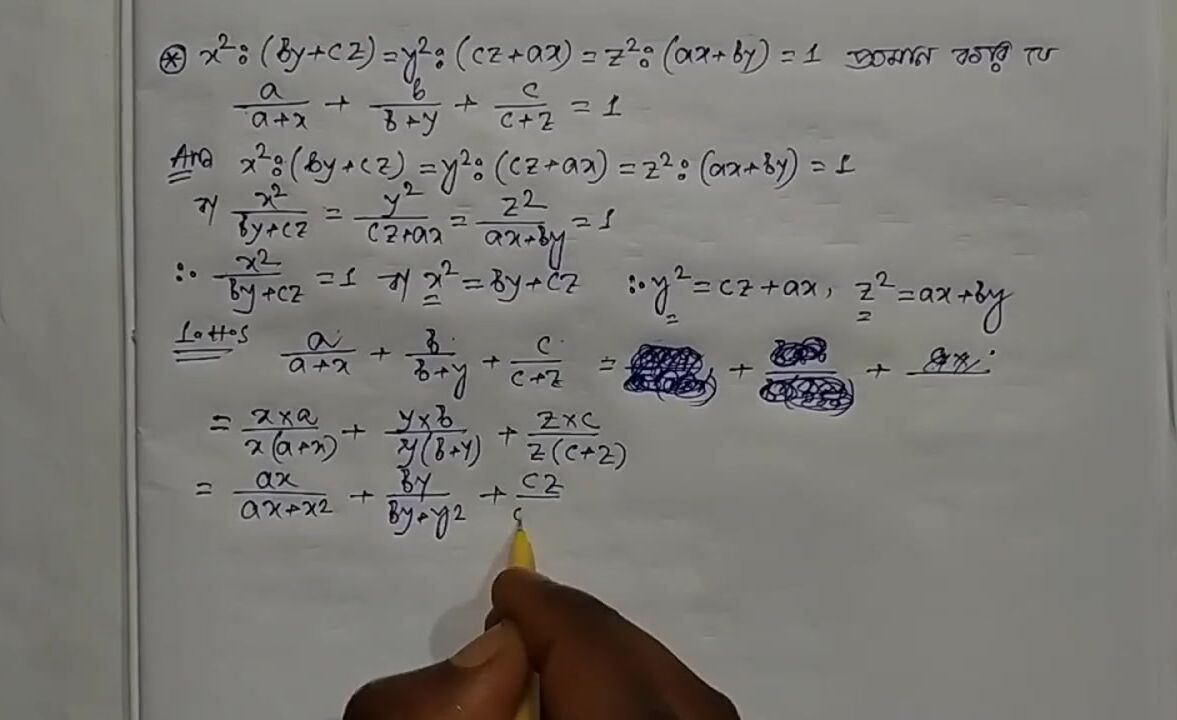 ⊛ x²:(By+cz)=y²:(cz+ax)=z²:(ax+by)=1 প্রমাণ করি যে
a/(a+x) + b/(b+y) + c/(c+z) = 1
Ans x²:(By+cz)=y²:(cz+ax)=z²:(ax+by)=1
বা x²/(By+cz) = y²/(cz+ax) = z²/(ax+by) = 1
∴ x²/(By+cz) = 1 বা x² = By+cz ∴ y² = cz+ax, z² = ax+by
L.H.S a/(a+x) + b/(b+y) + c/(c+z) = + +
= x×a/x(a+x) + y×b/y(b+y) + z×c/z(c+z)
= ax/(ax+x²) + By/(By+y²) + cz/c